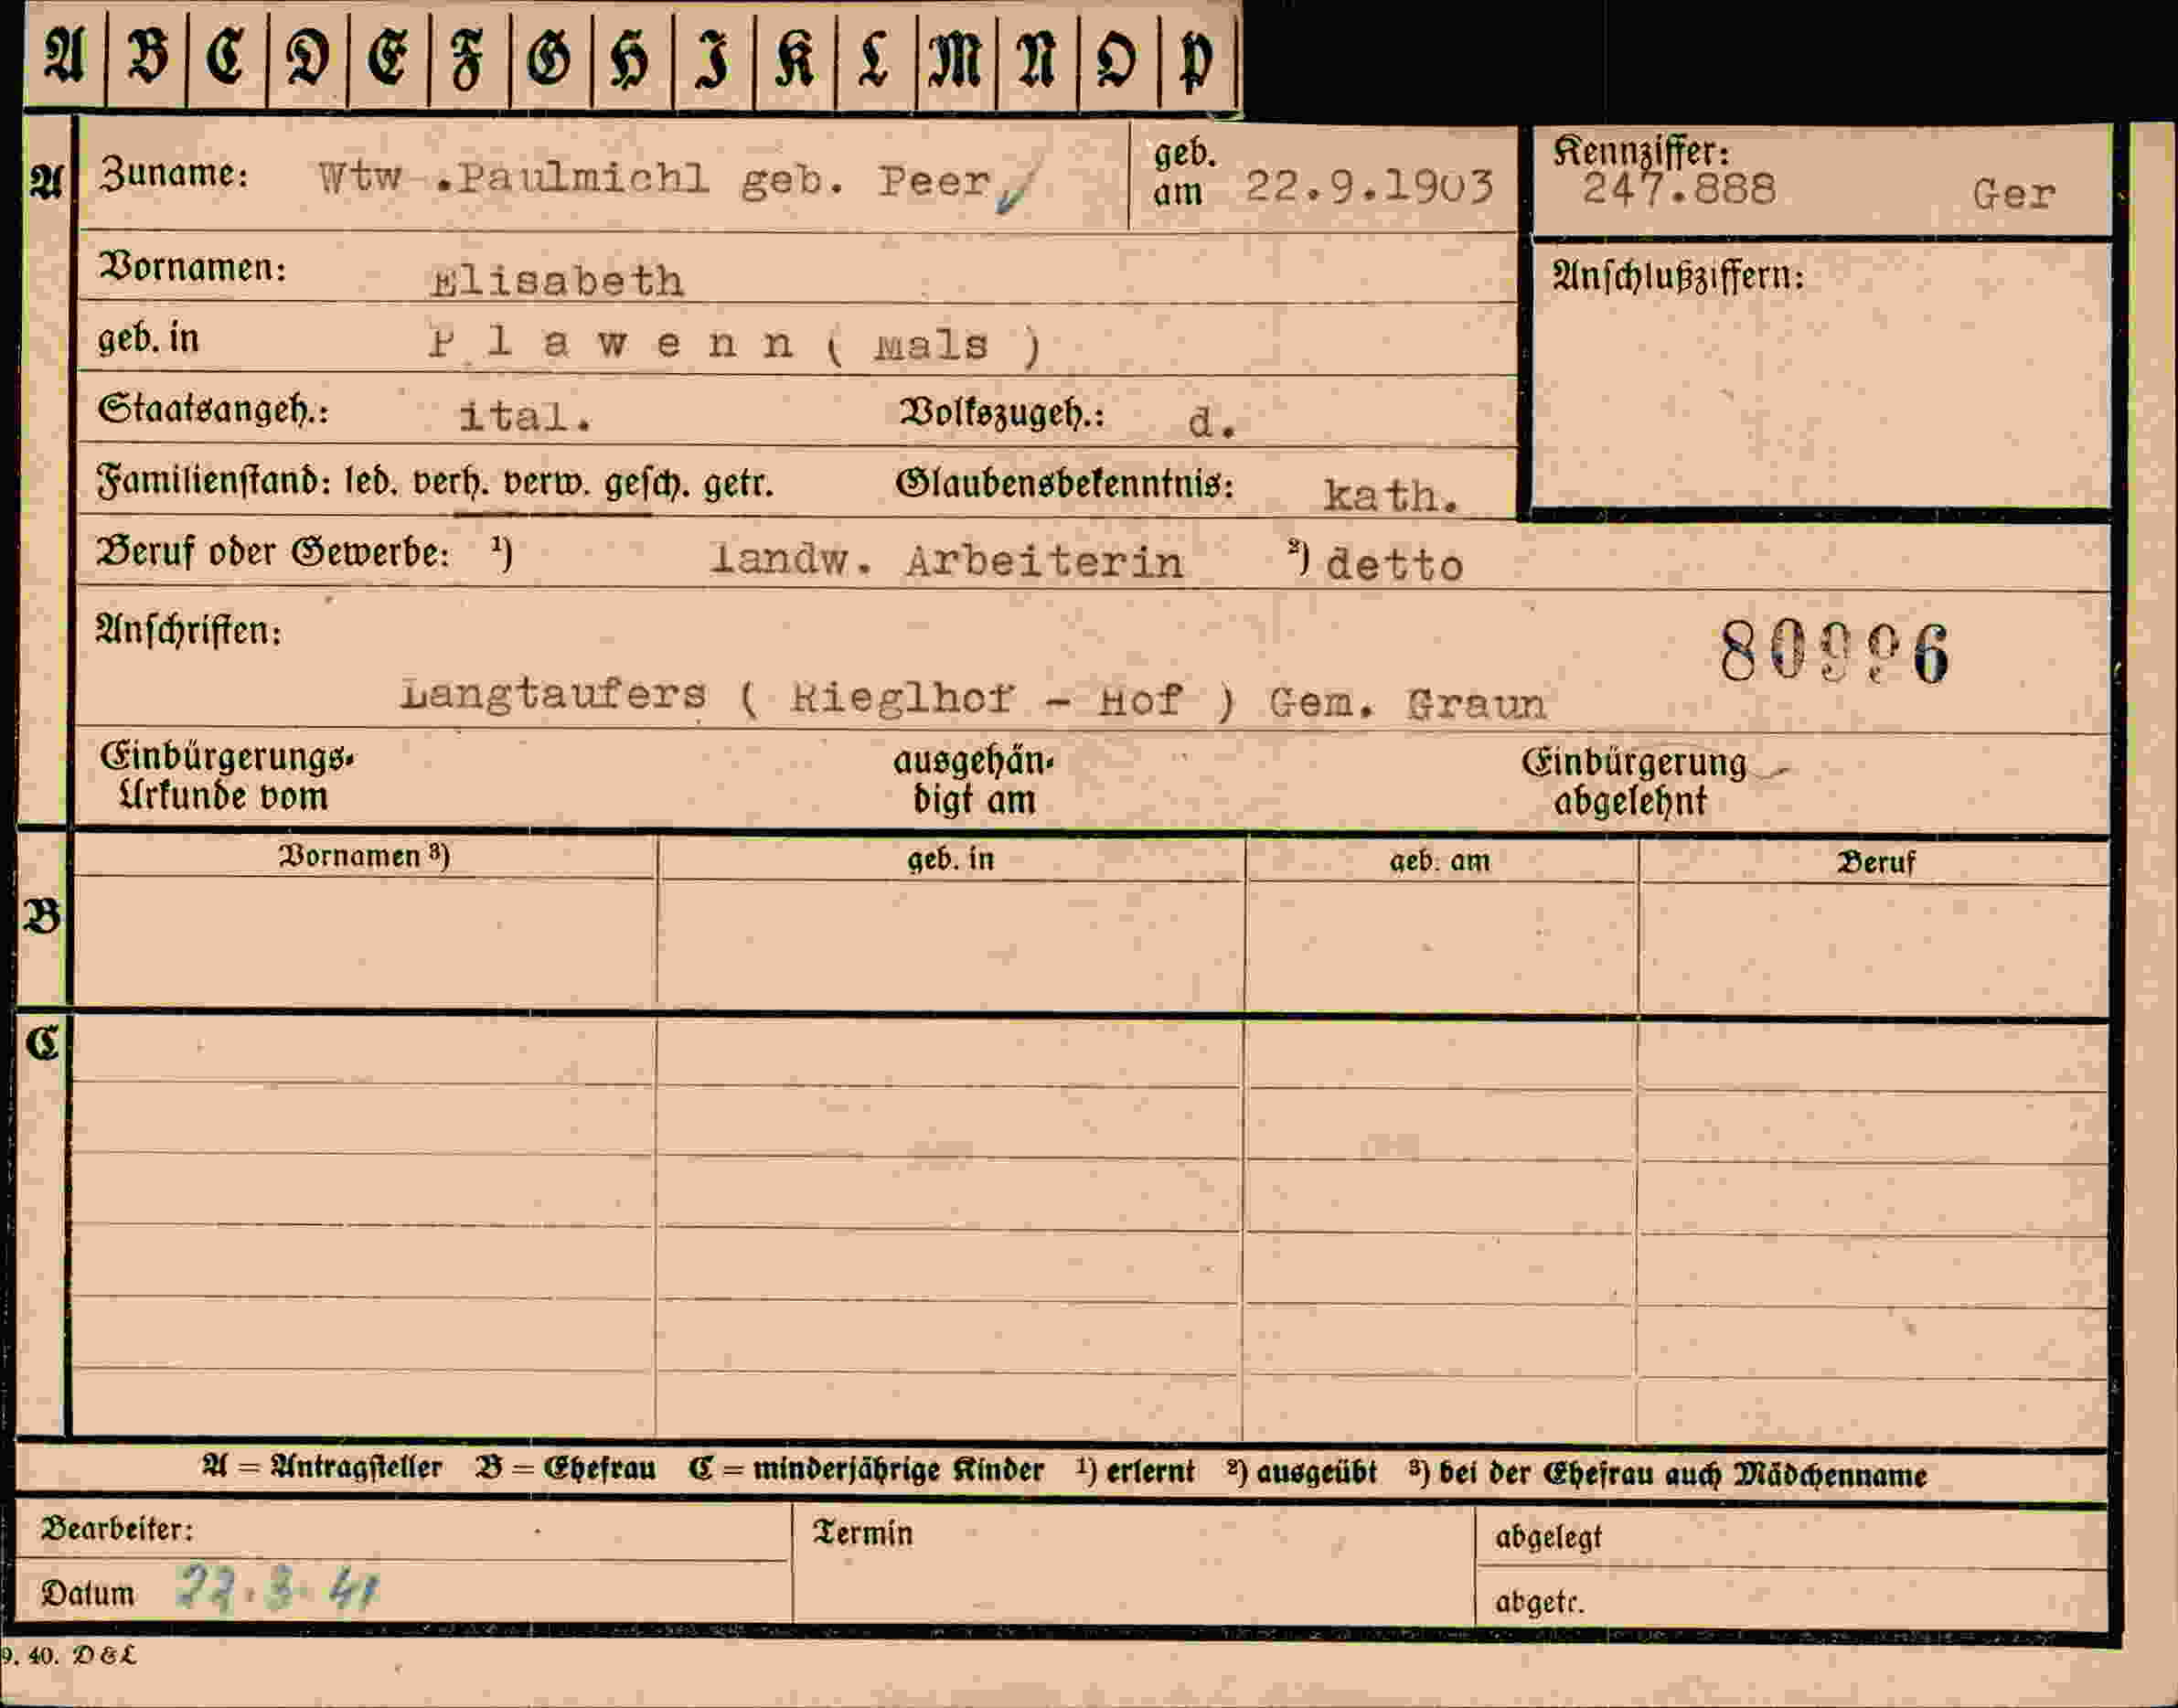 A B C D E F G H I K L M N O P
A Zuname: Wtw .Paulmichl geb. Peer geb. am 22.9.1903 Kennziffer: 247.888 Ger
Vornamen: Elisabeth Anschlußziffern:
geb. in P l a w e n n ( Mals )
Staatsangeh.: ital. Volkszugeh.: d.
Familienstand: led. verh. verw. gesch. getr. Glaubensbekenntnis: kath.
Beruf oder Gewerbe: ¹) landw. Arbeiterin ²) detto
Anschriften: 80996
Langtaufers ( Rieglhof - Hof ) Gem. Graun
Einbürgerungs- ausgehän- Einbürgerung
Urkunde vom digt am abgelehnt
B Vornamen ³) geb. in geb. am Beruf
C
A = Antragsteller B = Ehefrau C = minderjährige Kinder ¹) erlernt ²) ausgeübt ³) bei der Ehefrau auch Mädchenname
Bearbeiter: Termin abgelegt
Datum 22.3.41 abgetr.
9. 40. D&L